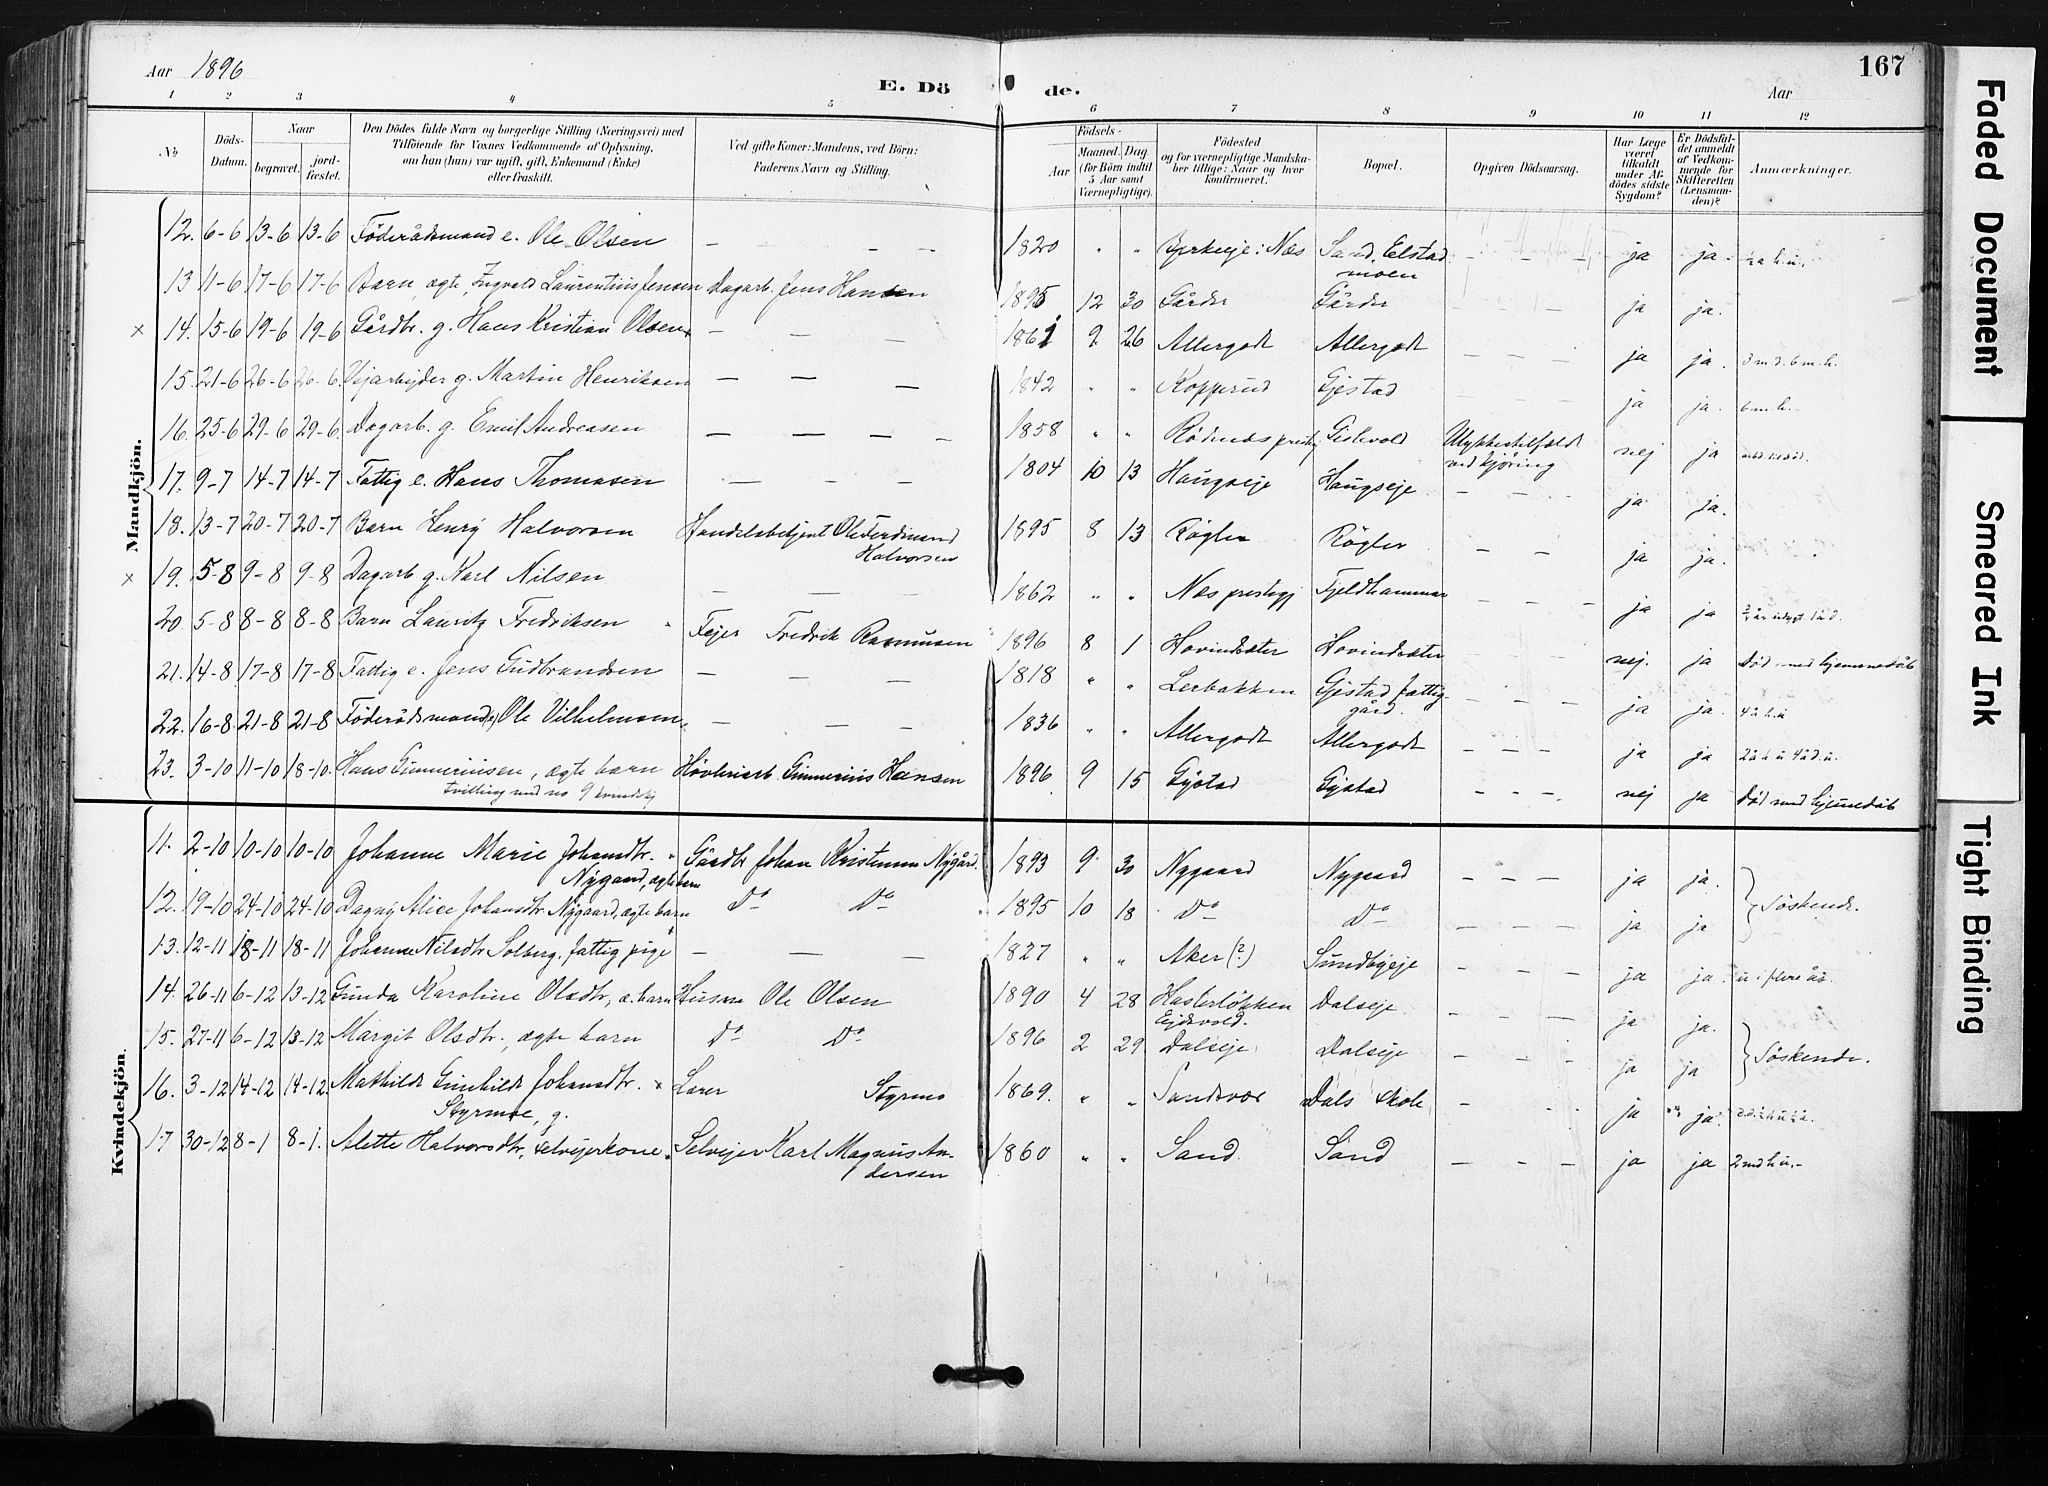 Aar 1896
E. Dö de.
Aar
167
1 2 3 4 5 6 7 8 9 10 11 12
No
Döds-Datum.
Naar
begravet.
jord-fæstet.
Den Dödes fulde Navn og borgerlige Stilling (Næringsvei) med
Tilföiende for Voxnes Vedkommende af Oplysning,
om han (hun) var ugift, gift, Enkemand (Enke)
eller fraskilt.
Ved gifte Koner: Mandens, ved Börn:
Faderens Navn og Stilling.
Födsels-
Aar
Maaned. Dag
(for Börn indtil
5 Aar samt
Værnepligtige).
Födested
og for værnepligtige Mandska-
ber tillige: Naar og hvor
konfirmeret.
Bopæl.
Opgiven Dödsaarsag.
Har Læge
været
tilkaldt
under Af-
dödes sidste
Sygdom?
Er Dödsfal-
det anmeldt
af Vedkom-
mende for
Skifteretten
(Lensman-
den)?
Anmærkninger.
Mandkjön.
12. 6-6 13-6 13-6 Föderådsmand e. Ole Olsen — — — 1820 " " Bjerkeeje i Næs Sand, Elstad moen — — — ja ja.
13 11-6 17-6 17-6 Barn, ægte, Ingvald Laurentius Jensen Dagarb. Jens Hansen 1895 12 30 Gårder Gårder ja ja.
x 14. 15-6 19-6 19-6 Gårdbr. g. Hans Kristian Olsen — — 1861 9 26 Allergodt Allergodt — — — ja ja. 3 m d. 6 m. h.
15. 21-6 26-6 26-6 Vejarbejder g. Martin Henriksen — — — 1842 " " Kopperud Gjestad ja ja. 6 m. h.
16. 25-6 29-6 29-6 Dagarb. g. Emil Andreasen — — — — 1858 " " Rødenæs prestgj Gislevold Ulykkestilfælde ved kjøring nej ja
17. 9-7 14-7 14-7 Fattig e. Hans Thomasen — — — — 1804 10 13 Haugseje Haugseje — — — ja ja.
18. 13-7 20-7 20-7 Barn Henry Halvorsen Handelsbetjent Ole Ferdinand Halvorsen 1895 8 13 Røgler Røgler — — ja ja.
x 19. 5-8 9-8 9-8 Dagarb g. Karl Nilsen — — — 1862 " " Næs prestegj Fjeldhammar — — — ja ja
20. 5-8 8-8 8-8 Barn Lauritz Fredriksen Fejer Fredrik Rasmussen 1896 8 1 Hovindsæter Hovindsæter nej. ja død med hjemmedåb
21. 14-8 17-8 17-8 Fattig e. Jens Gudbrandsen — — — 1818 " " Lerbakken Gjestad fattig-gård. — — — ja ja. 4 å h. u
22. 16-8 21-8 21-8 Föderådsmand e, Ole Vilhelmsen — — — 1836 " " Allergodt Allergodt — — — ja ja 2 å h u 4 å d. u.
23. 3-10 11-10 18-10. Hans Gunneriusen, ægte barn Høvleriarb. Gunnerius Hansen 1896 9 15 Gjestad Gjestad — — — nej ja død med hjemmedåb
tvilling med no 9 kvindekj
Kvindekjön.
11. 2-10 10-10 10-10 Johanne Marie Johansdtr. Nygaard, ægte barn Gårdbr Johan Kristensen Nygård. 1893 9 30 Nygaard Nygaard — — — ja ja.
12. 19-10 24-10 24-10 Dagny Alice Johansdtr. Nygaard, ægte barn Do Do 1895 10 18 Do Do ja ja } Søskende.
13. 12-11 18-11 18-11 Johanne Nilsdtr Solberg, fattig pige — — — 1827 " " Aker (?) Sundbyeje — — — ja ja. u i flere år.
14. 26-11 6-12 13-12 Gunda Karoline Olsdtr, æ. barn Husm Ole Olsen 1890 4 28 Hasterløkken Ejdsvold. Dalseje — — — ja ja.
15. 27-11 6-12 13-12 Margit Olsdtr., ægte barn Do Do 1896 2 29 Dalseje Dalseje — — — ja ja } Søskende.
16. 3-12 14-12 14-12. Mathilde Gunhilde Johansdtr. Styrmoe, g. Lærer Styrmo 1869. " " Sandsvær Dals skole — ja ja.
17 30-12 8-1 8-1. Alette Halvorsdtr, selvejerkone Selvejer Karl Magnus Andersen 1860 " " Sand. Sand — — — ja ja 2 md h u.-
Faded Document
Smeared Ink
Tight Binding